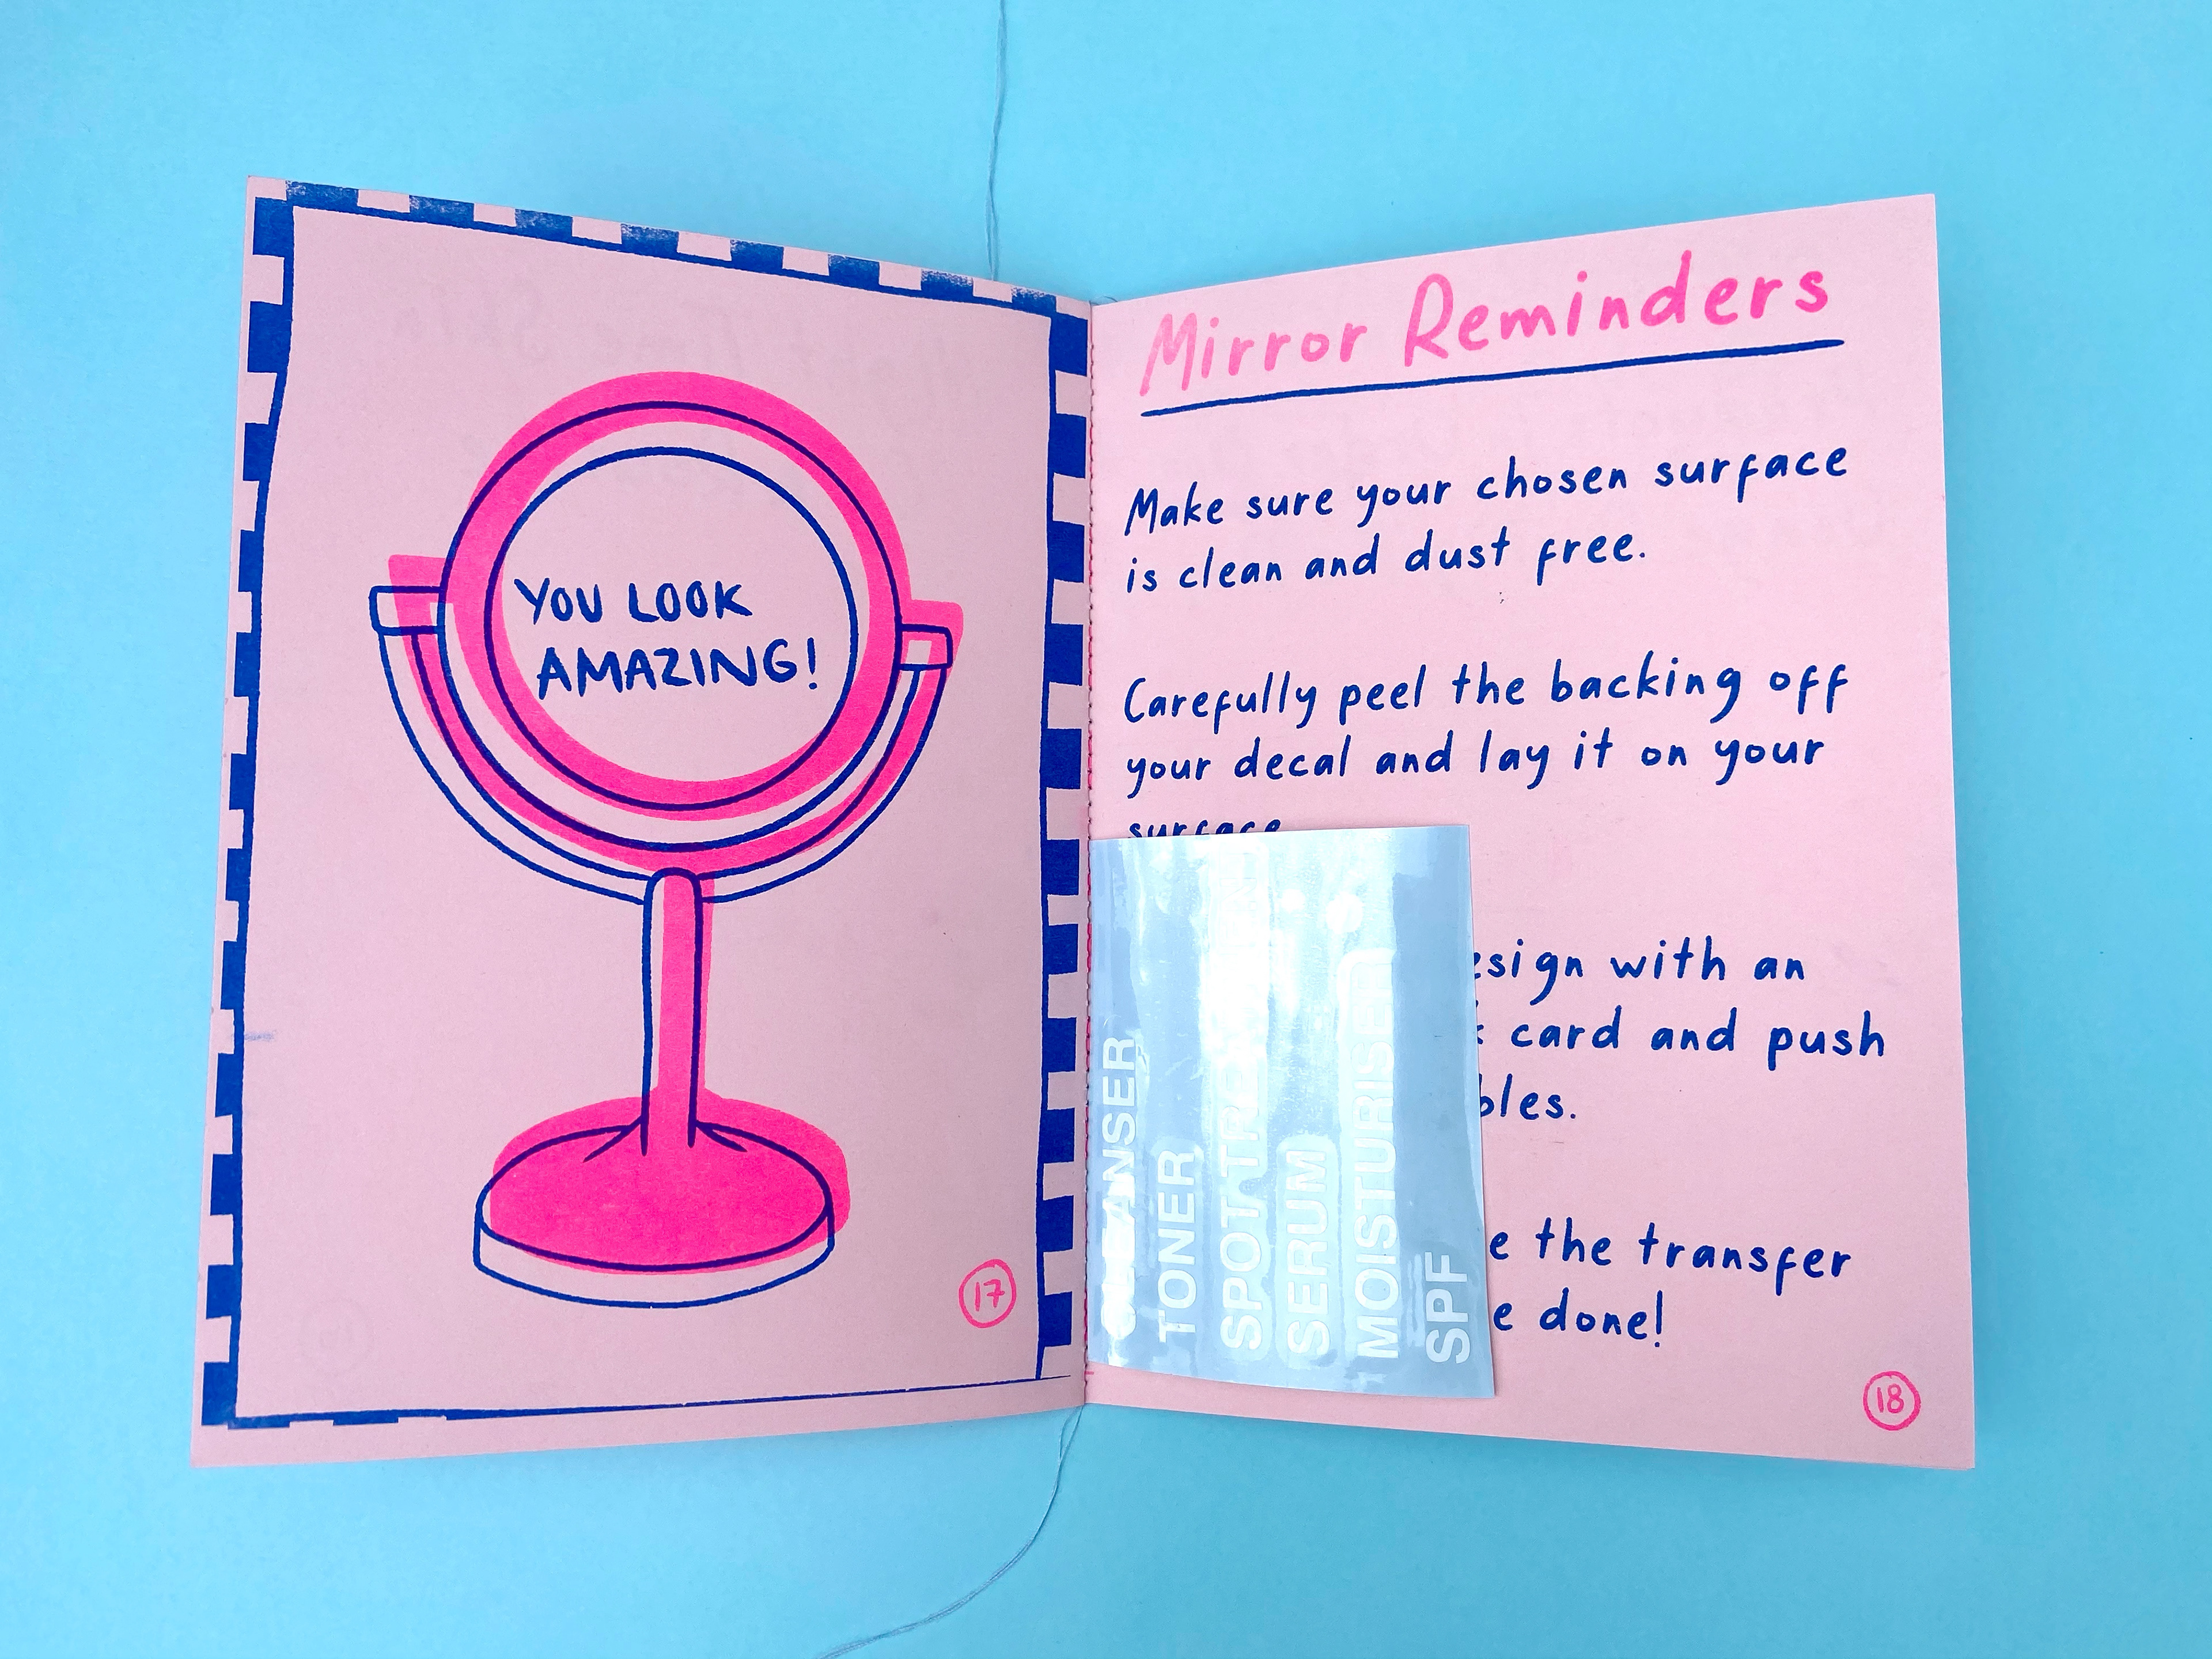 YOU LOOK
AMAZING!
17
Mirror Reminders
Make sure your chosen surface
is clean and dust free.
Carefully peel the backing off
your decal and lay it on your
surface
with an
card and push
the transfer
done!
CLEANSER
TONER
SPOT TREATMENT
SERUM
MOISTURISER
SPF
18